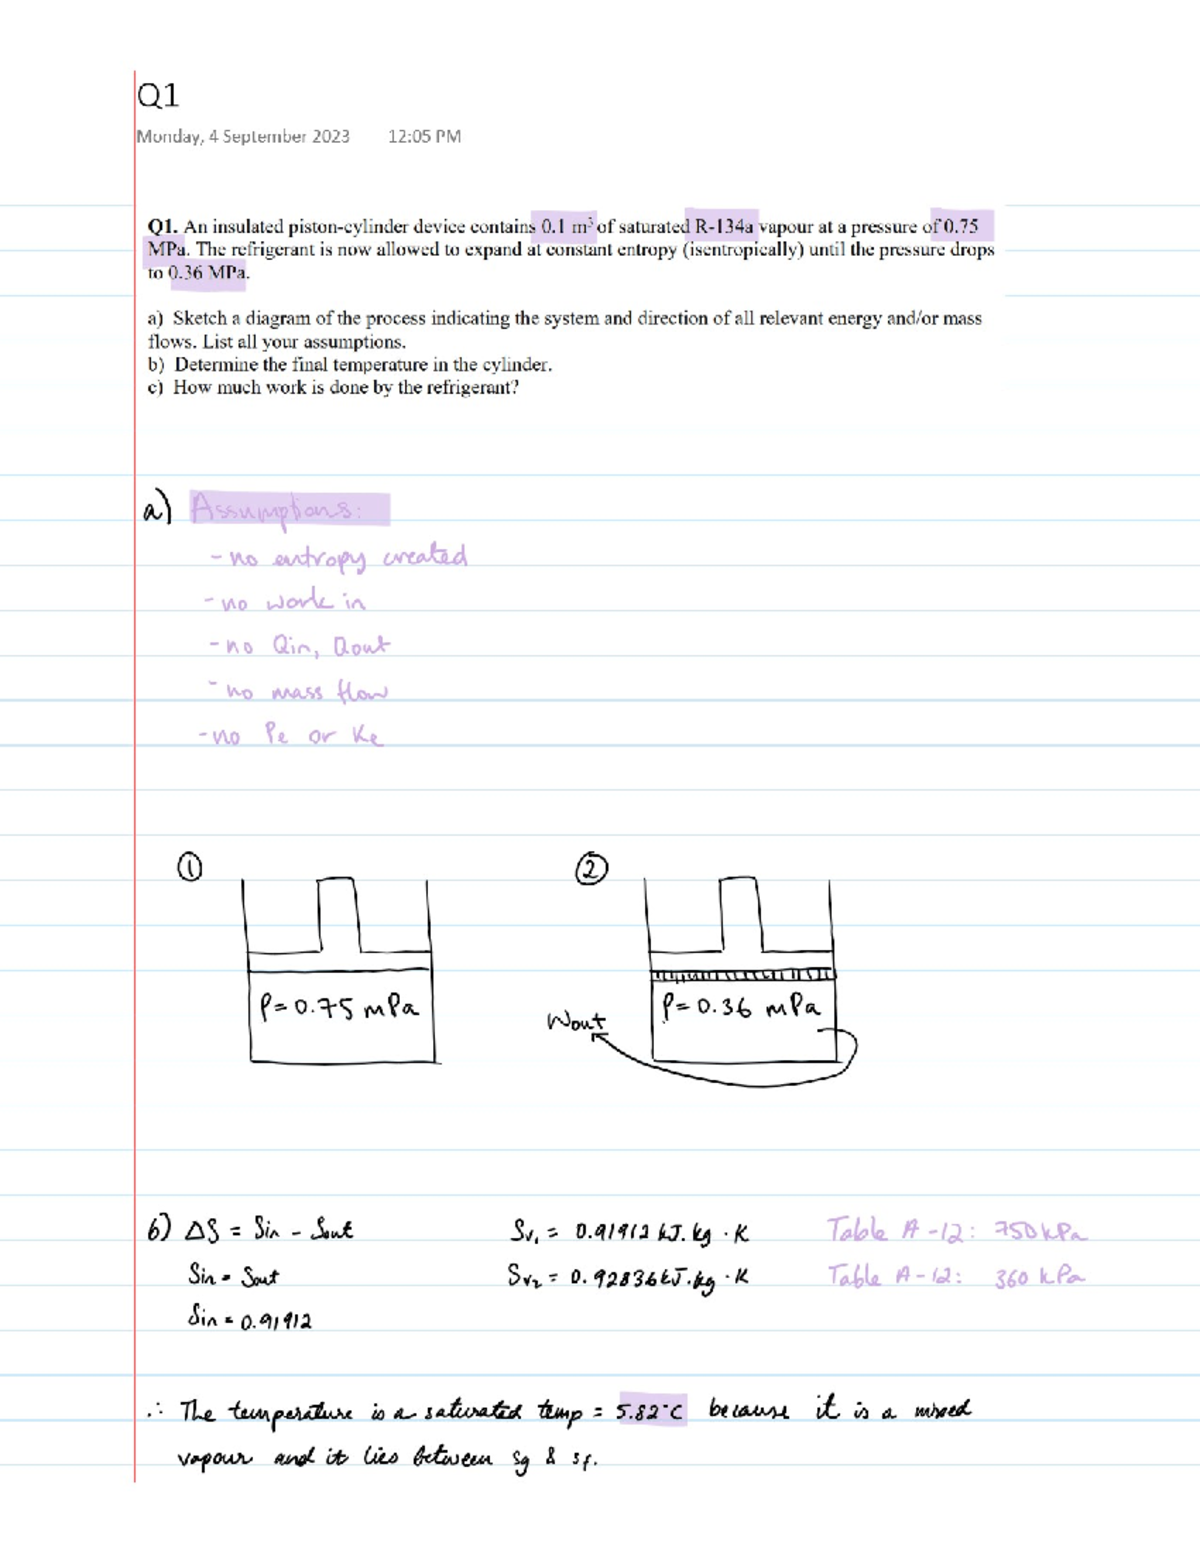 Q1
Monday, 4 September 2023 12:05 PM
Q1. An insulated piston-cylinder device contains 0.1 m³ of saturated R-134a vapour at a pressure of 0.75
MPa. The refrigerant is now allowed to expand at constant entropy (isentropically) until the pressure drops
to 0.36 MPa.
a) Sketch a diagram of the process indicating the system and direction of all relevant energy and/or mass
flows. List all your assumptions.
b) Determine the final temperature in the cylinder.
c) How much work is done by the refrigerant?
a) Assumptions:
- no entropy created
- no work in
- no Qin, Qout
- no mass flow
- no Pe or Ke
① ②
P=0.75 mPa
P=0.36 mPa
Wout
b) ΔS = Sin - Sout Sv₁ = 0.91912 kJ.kg.K Table A-12: 750kPa
Sin = Sout Sv₂ = 0.92836kJ.kg.K Table A-12: 360 kPa
Sin = 0.91912
∴ The temperature is a saturated temp = 5.82°C because it is a mixed
vapour and it lies between Sg & Sf.